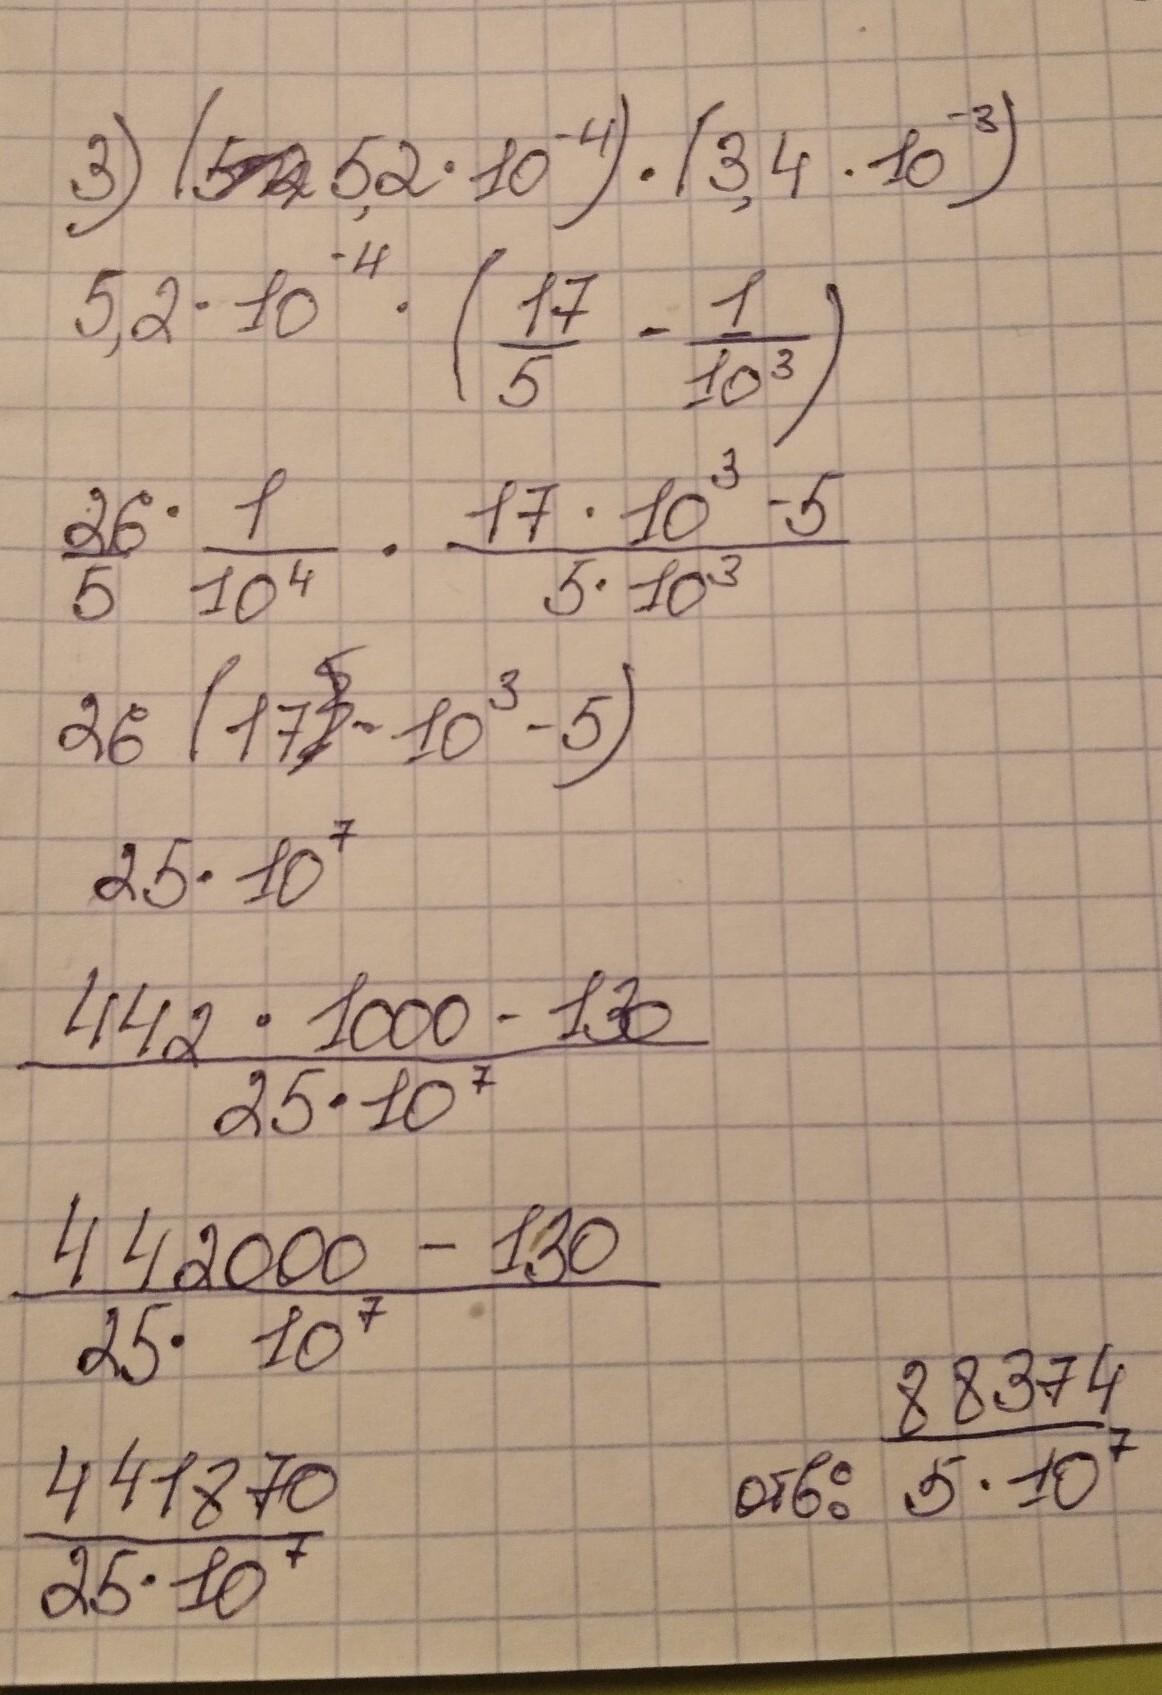 3) (5,2 · 10⁻⁴) · (3,4 · 10⁻³)
5,2 · 10⁻⁴ · (17/5 - 1/10³)
26/5 · 1/10⁴ · (17 · 10³ - 5)/(5 · 10³)
26 (17 - 10³ - 5)
25 · 10⁷
442 · 1000 - 130
25 · 10⁷
442000 - 130
25 · 10⁷
441870
25 · 10⁷
отв: 88374/(5 · 10⁷)